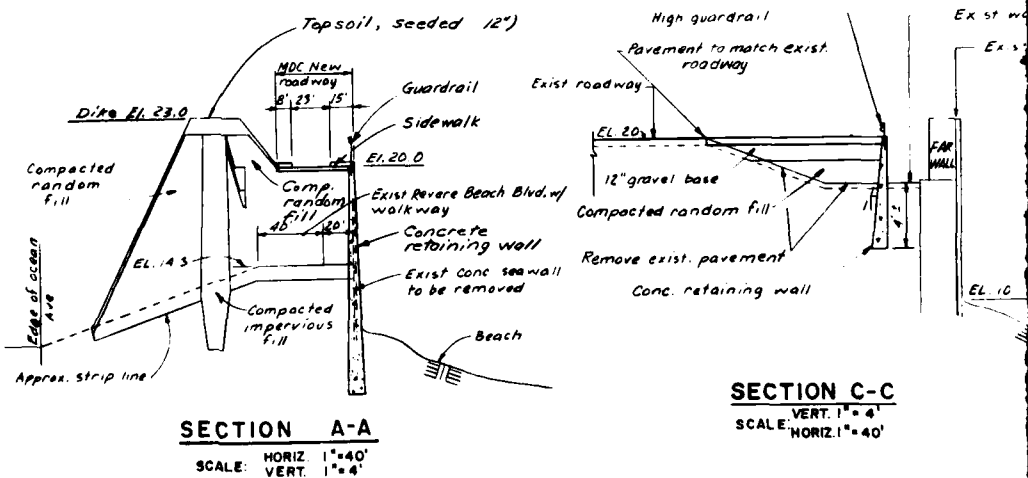 Topsoil, seeded 12")
MDC New
roadway
8' 23' 15'
Guardrail
Sidewalk
Dike El. 23.0
El. 20.0
Compacted
random
fill
Comp.
random
fill
Exist Revere Beach Blvd. w/
walkway
40' 20'
Concrete
retaining wall
EL. 14.5
Exist Conc seawall
to be removed
Edge of ocean
Ave
Compacted
impervious
fill
Beach
Approx. strip line
SECTION A-A
SCALE: HORIZ. 1"=40'
VERT. 1"=4'
High guardrail
Exist
Pavement to match exist.
roadway
Exist roadway
EL. 20
FAR
WALL
12" gravel base
Compacted random fill
Remove exist. pavement
Conc. retaining wall
EL. 10
SECTION C-C
SCALE: VERT. 1"=4'
HORIZ. 1"=40'